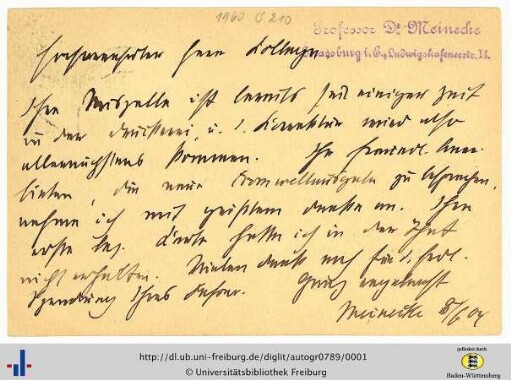 1960 G 210
Professor Dr Meinecke
Strassburg i. E., Ludwigshafenerstr. 12.
Hochverehrter Herr Kollege
Ihre Miszelle ist bereits seit einiger Zeit
in der Druckerei, u. d. Korrektur wird also
allernächstens kommen. Ihr freundl. Aner-
bieten, die neue Cromwellausgabe zu besprechen,
nehme ich mit größtem Danke an. Ihre
erste bez. Karte hatte ich in der That
nicht erhalten. Vielen Dank noch für d. frdl.
Spendung Ihres
Ganz ergebenst
Meinecke
http://dl.ub.uni-freiburg.de/diglit/autogr0789/0001
© Universitätsbibliothek Freiburg
gefördert durch
Baden-Württemberg